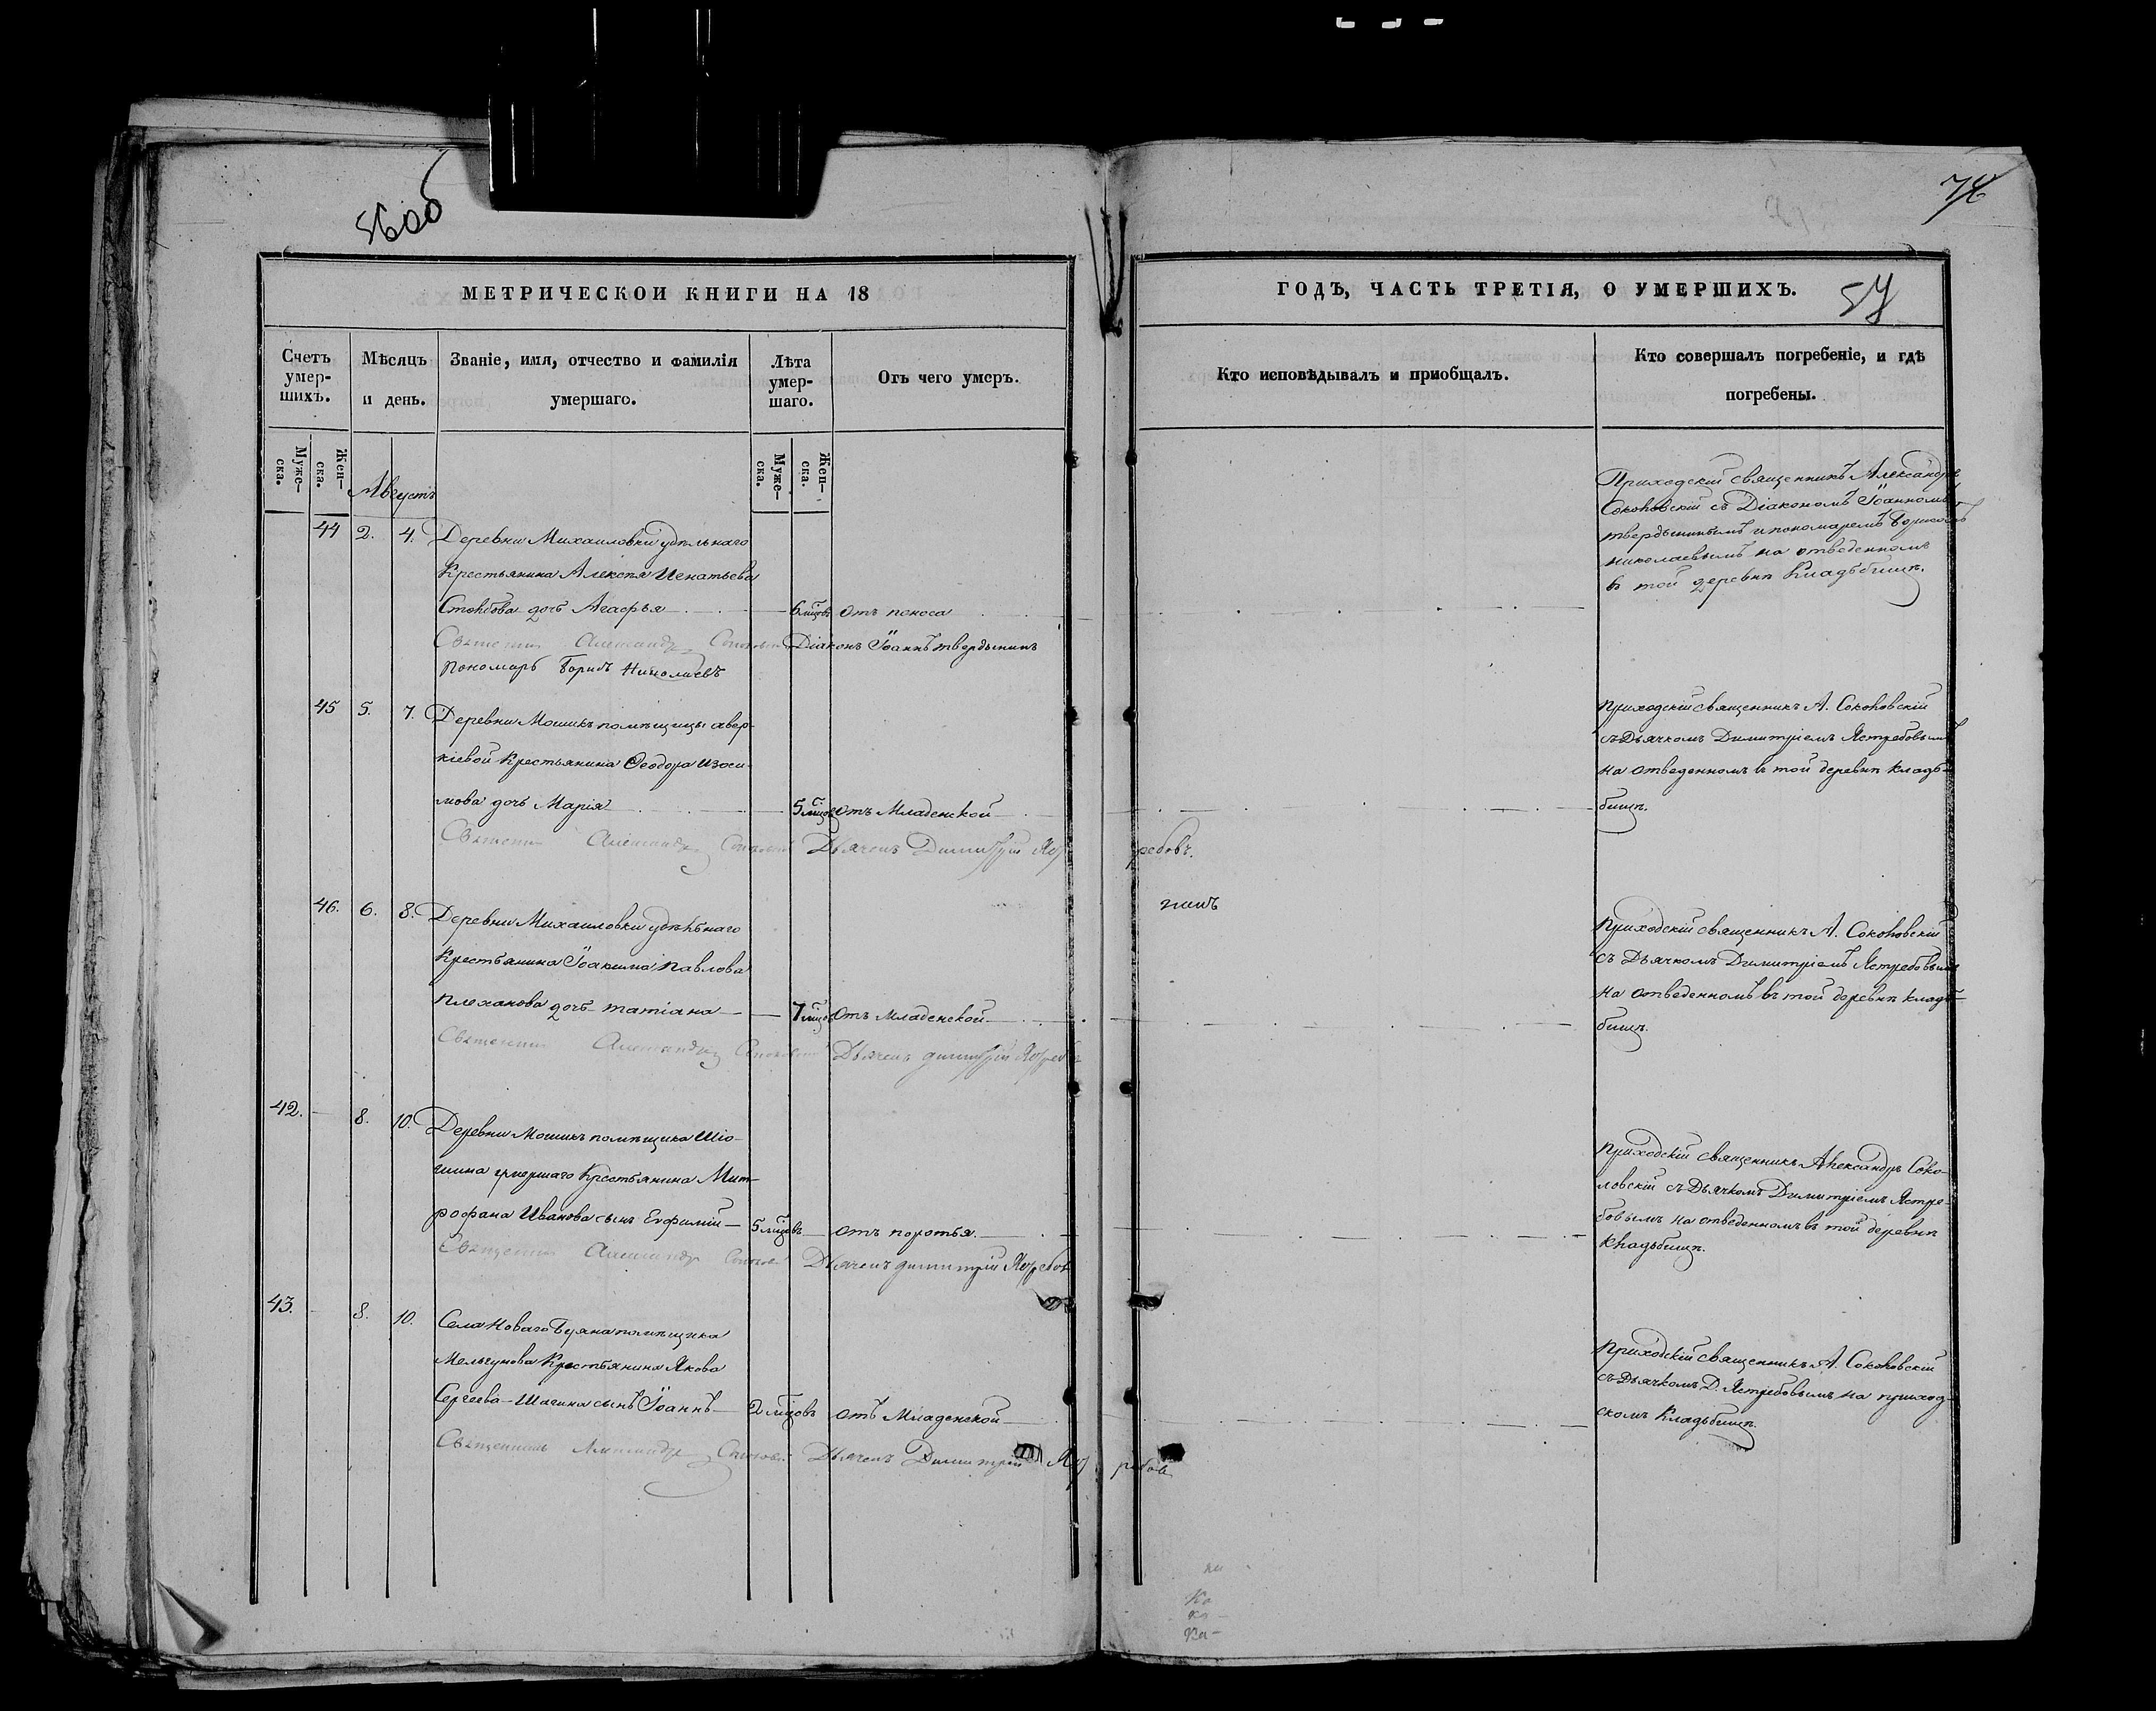 56об
76
МЕТРИЧЕСКОЙ КНИГИ НА 18
ГОДЪ, ЧАСТЬ ТРЕТІЯ, О УМЕРШИХЪ.
57
Счетъ умер-шихъ.
Мѣсяцъ и день.
Званіе, имя, отчество и фамилія умершаго.
Лѣта умер-шаго.
Отъ чего умеръ.
Кто исповѣдывалъ и пріобщалъ.
Кто совершалъ погребеніе, и гдѣ погребены.
Муже-ска.
Жен-ска.
Муже-ска.
Жен-ска.
Августъ
44 2. 4. Деревни Михаиловки удѣльнаго
Крестьянина Алексѣя Игнатьева
дочь Агафья 6 мцовъ отъ поноса
Священникъ Александръ Соколовскій Діаконъ Іоаннъ Твердынинъ
Пономарь Борисъ Николаевъ
Приходскій священникъ Александръ
Соколовскій съ Діакономъ Іоанномъ
Твердынинымъ и пономаремъ Борисомъ
Николаевымъ на отведенномъ
въ той деревнѣ Кладьбищѣ.
45 5. 7. Деревни Мошикъ помѣщицы Авер-
кіевой Крестьянина Ѳеодора Изоси-
мова дочь Марія 5 мцовъ отъ Младенской
Священникъ Александръ Соколовскій Дьячекъ Димитрій Ястребовъ.
Приходскій священникъ А. Соколовскій
съ Дьячкомъ Димитріемъ Ястребовымъ
на отведенномъ въ той деревнѣ кладь-
бищѣ.
46. 6. 8. Деревни Михаиловки удѣльнаго
Крестьянина Іоакима Павлова
Плеханова дочь Татіана 7 мцовъ отъ Младенской
Священникъ Александръ Соколовскій Дьячекъ Димитрій Ястребовъ
Приходскій священникъ А. Соколовскій
съ Дьячкомъ Димитріемъ Ястребовымъ
на отведенномъ въ той деревнѣ кладь-
бищѣ.
42. 8. 10. Деревни Мошикъ помѣщика Шіо-
Крестьянина Мит-
рофана Иванова сынъ Евфимій 5 мцовъ отъ
Священникъ Александръ Соколовскій Дьячекъ Димитрій Ястребовъ
Приходскій священникъ Александръ Соко-
ловскій съ Дьячкомъ Димитріемъ Ястре-
бовымъ на отведенномъ въ той деревнѣ
Кладьбищѣ.
43. 8. 10. Села Новаго Буяна помѣщика
Мельгунова Крестьянина Якова
Сергеева Шагина сынъ Іоаннъ 2 мцовъ отъ Младенской
Священникъ Александръ Соколовскій Дьячекъ Димитрій Ястребовъ
Приходскій священникъ А. Соколовскій
съ Дьячкомъ Д. Ястребовымъ на приход-
скомъ Кладьбищѣ.